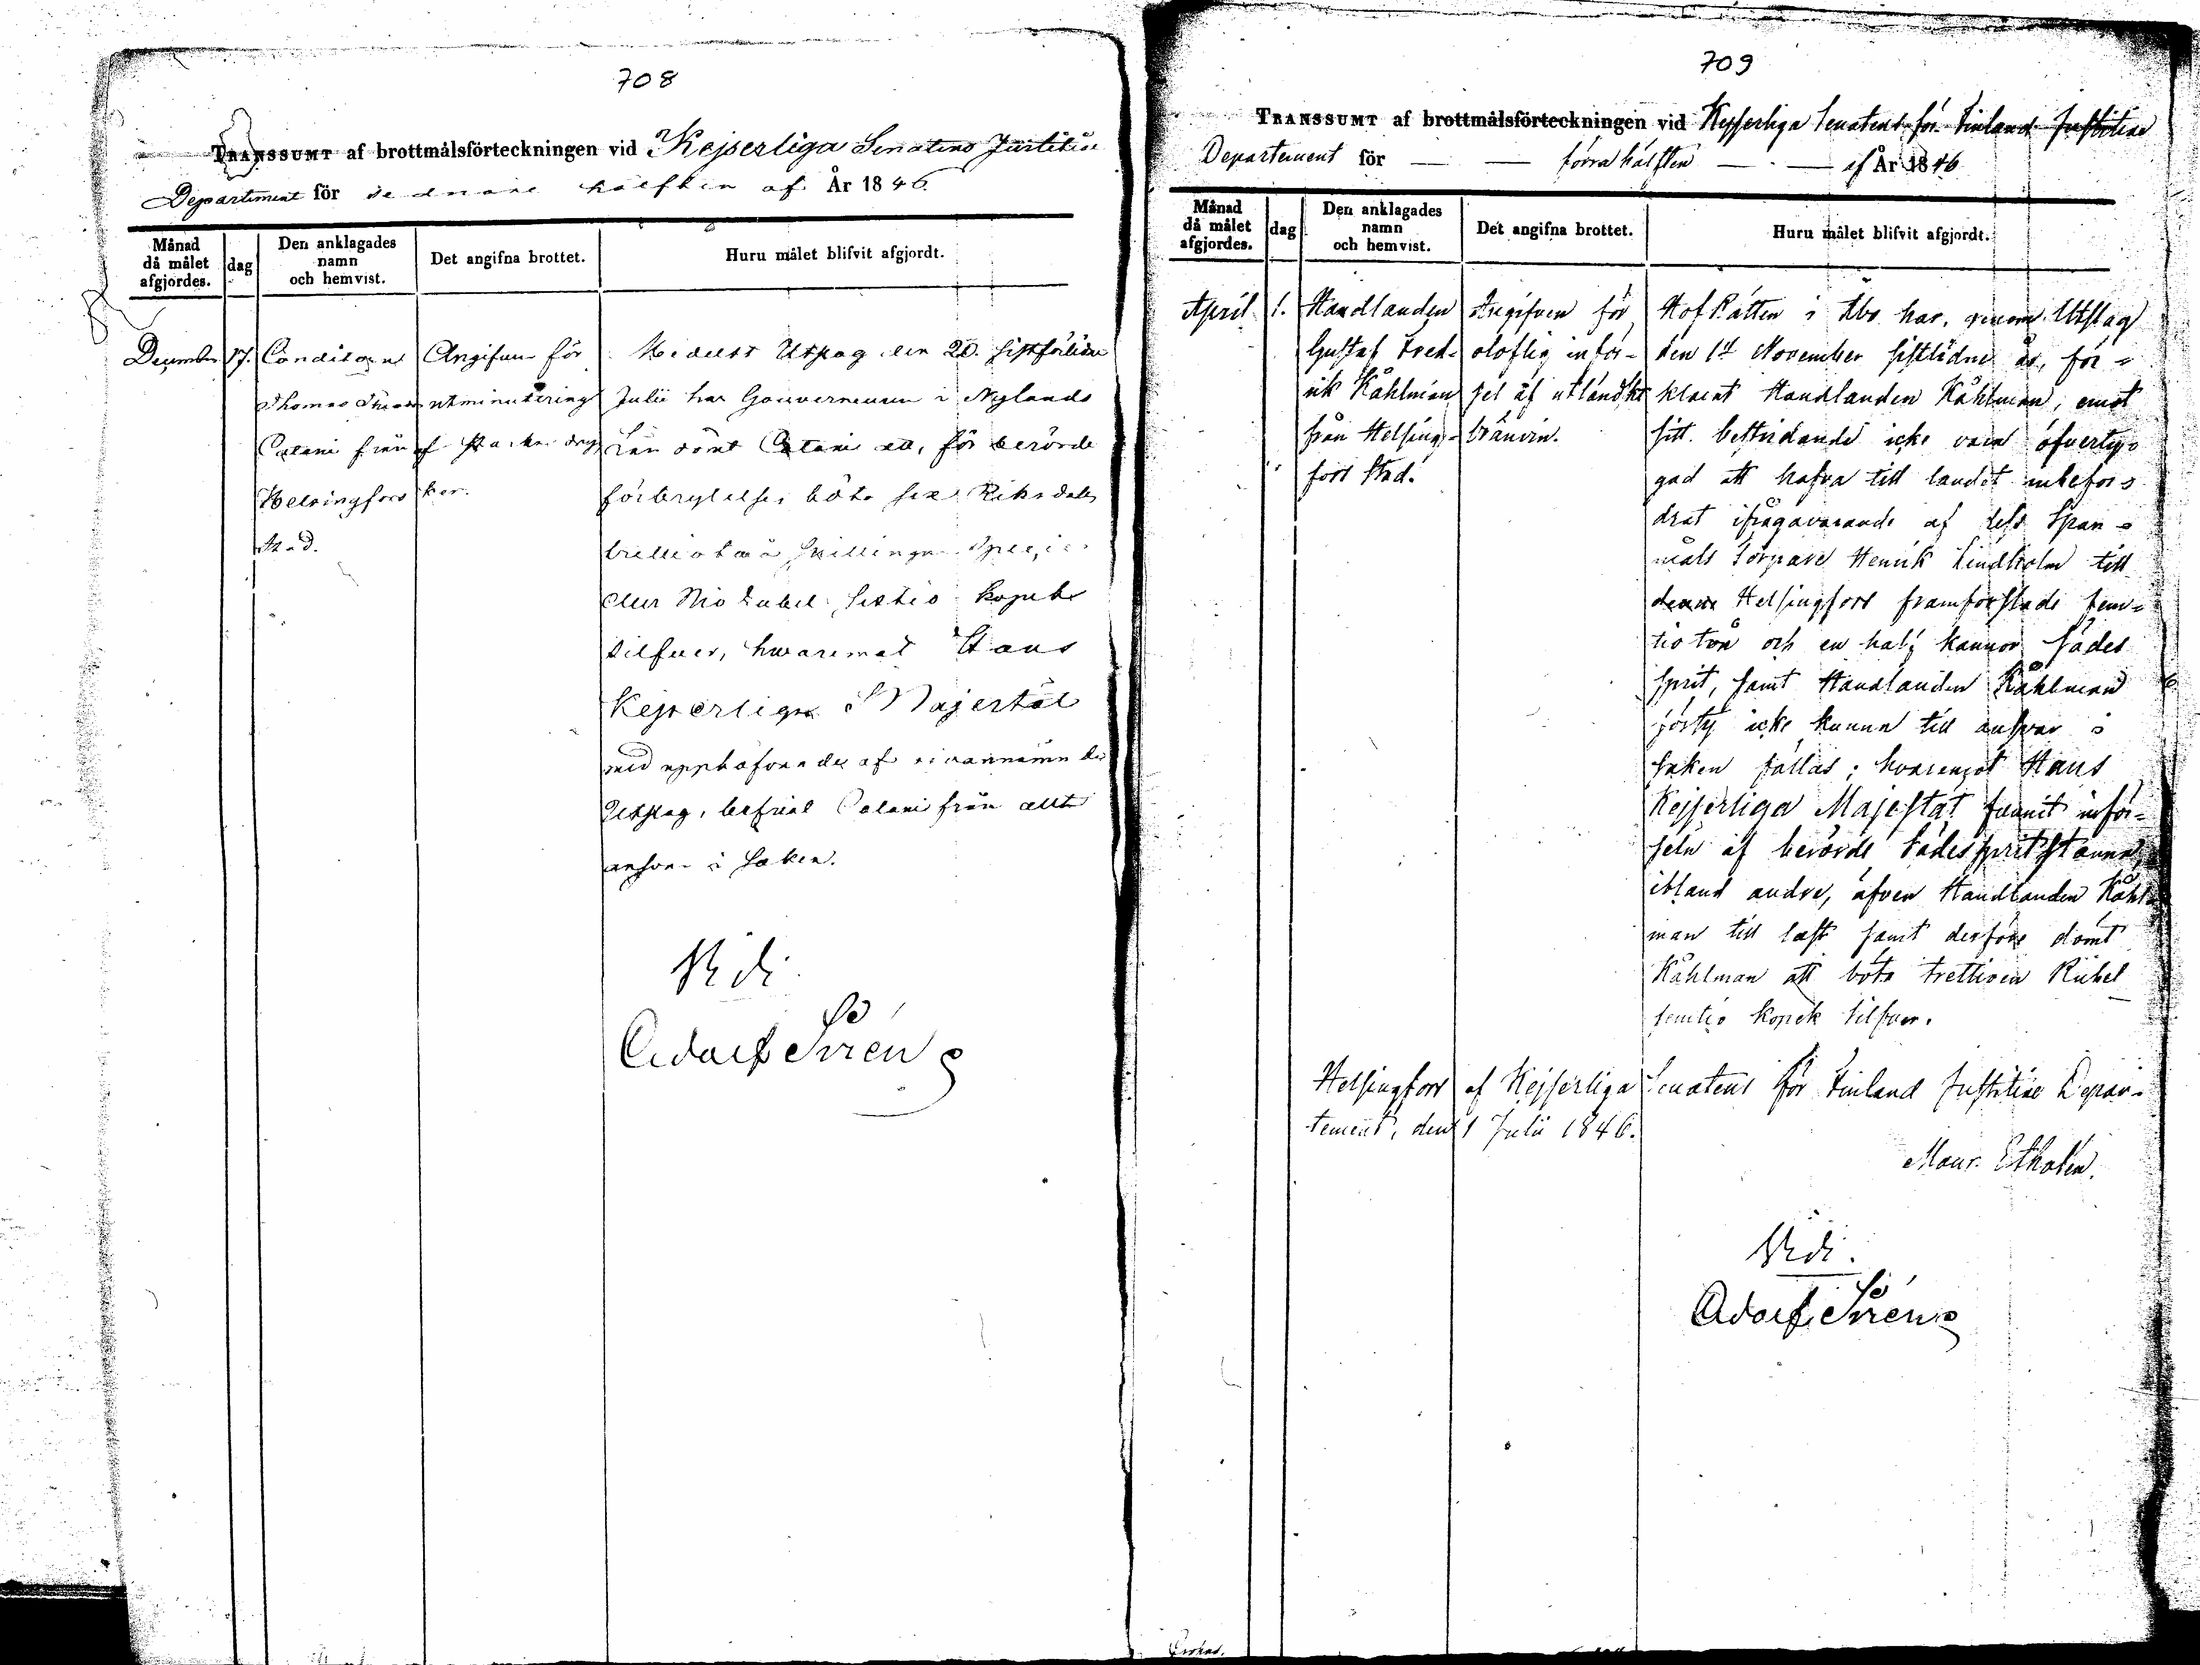 708
TRANSSUMT af brottmålsförteckningen vid Kejserliga Senatens Justitiæ
Departement för sednare hälften af År 1846
Månad då målet afgjordes.
dag
Den anklagades namn och hemvist.
Det angifna brottet.
Huru målet blifvit afgjordt.
December
17.
Conditorn
Thomas
Catani från
Helsingfors
stad.
Angifven för
utminutering
af starka dryc
ker.
Medelst Utslag den 20. sistförlidne
Julii har Gouverneuren i Nylands
Län dömt Catani att, för berörde
förbrytelse, böta sex Riksdaler
tretiotvå skillingar Specie
eller Nio Rubel sextio kopek
silfver, hwaremot Hans
Kejserliga Majestät
med upphäfvande af ofvannämnde
Utslag, befriat Catani från allt
ansvar i saken.
Vidi
Adolf Sirén
709
TRANSSUMT af brottmålsförteckningen vid Kejserliga Senatens för Finland Justitiæ
Departement för — — förra hälften — — af År 1846
Månad då målet afgjordes.
dag
Den anklagades namn och hemvist.
Det angifna brottet.
Huru målet blifvit afgjordt.
April
1.
Handlanden
Gustaf Fred-
rik Kåhlman
från Helsing-
fors stad.
Angifven för
oloflig inför-
sel af utländskt
bränvin.
HofRätten i Åbo har, genom Utslag
den 14 November sistlidne år, för-
klarat Handlanden Kåhlman, emot
sitt bestridande icke vara öfverty-
gad att hafva till landet inbefor-
drat ifrågavarande af dess Span-
måls Torpare Henrik Lindholm till
Helsingfors framforslade fem-
tio två och en half kannor sädes
sprit, samt Handlanden Kåhlman
förty icke kunna till ansvar i
saken fällas; hvaremot Hans
Kejserliga Majestät funnit inför-
seln af berörde sädessprit stanna,
ibland andre, äfven Handlanden Kåhl-
man till last samt derföre dömt
Kåhlman att böta trettioen Rubel
femtio kopek silfver.
Helsingfors af Kejserliga Senatens för Finland Justitiæ Depar-
tement, den 1 Julii 1846.
Maur. Etholén.
Vidi.
Adolf Sirén